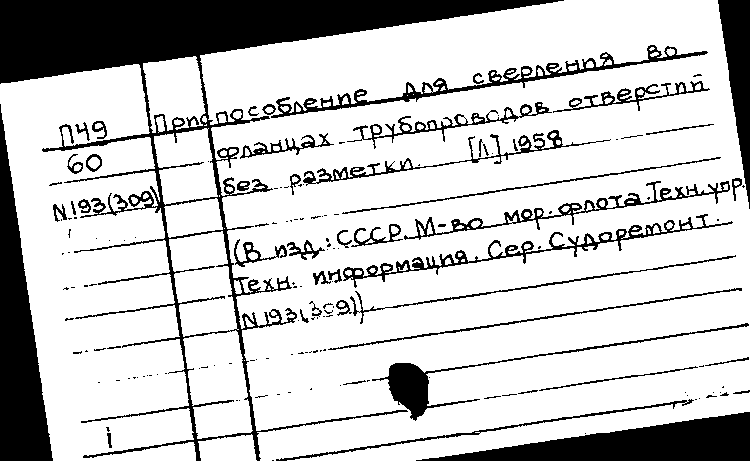 П49
60
N193(309)
Приспособление для сверления во
фланцах трубопроводов отверстий
без разметки. [Л], 1958
(В изд.: СССР. М-во мор. флота. Техн. упр.
Техн. информация. Сер. Судоремонт.
N193(309))
i